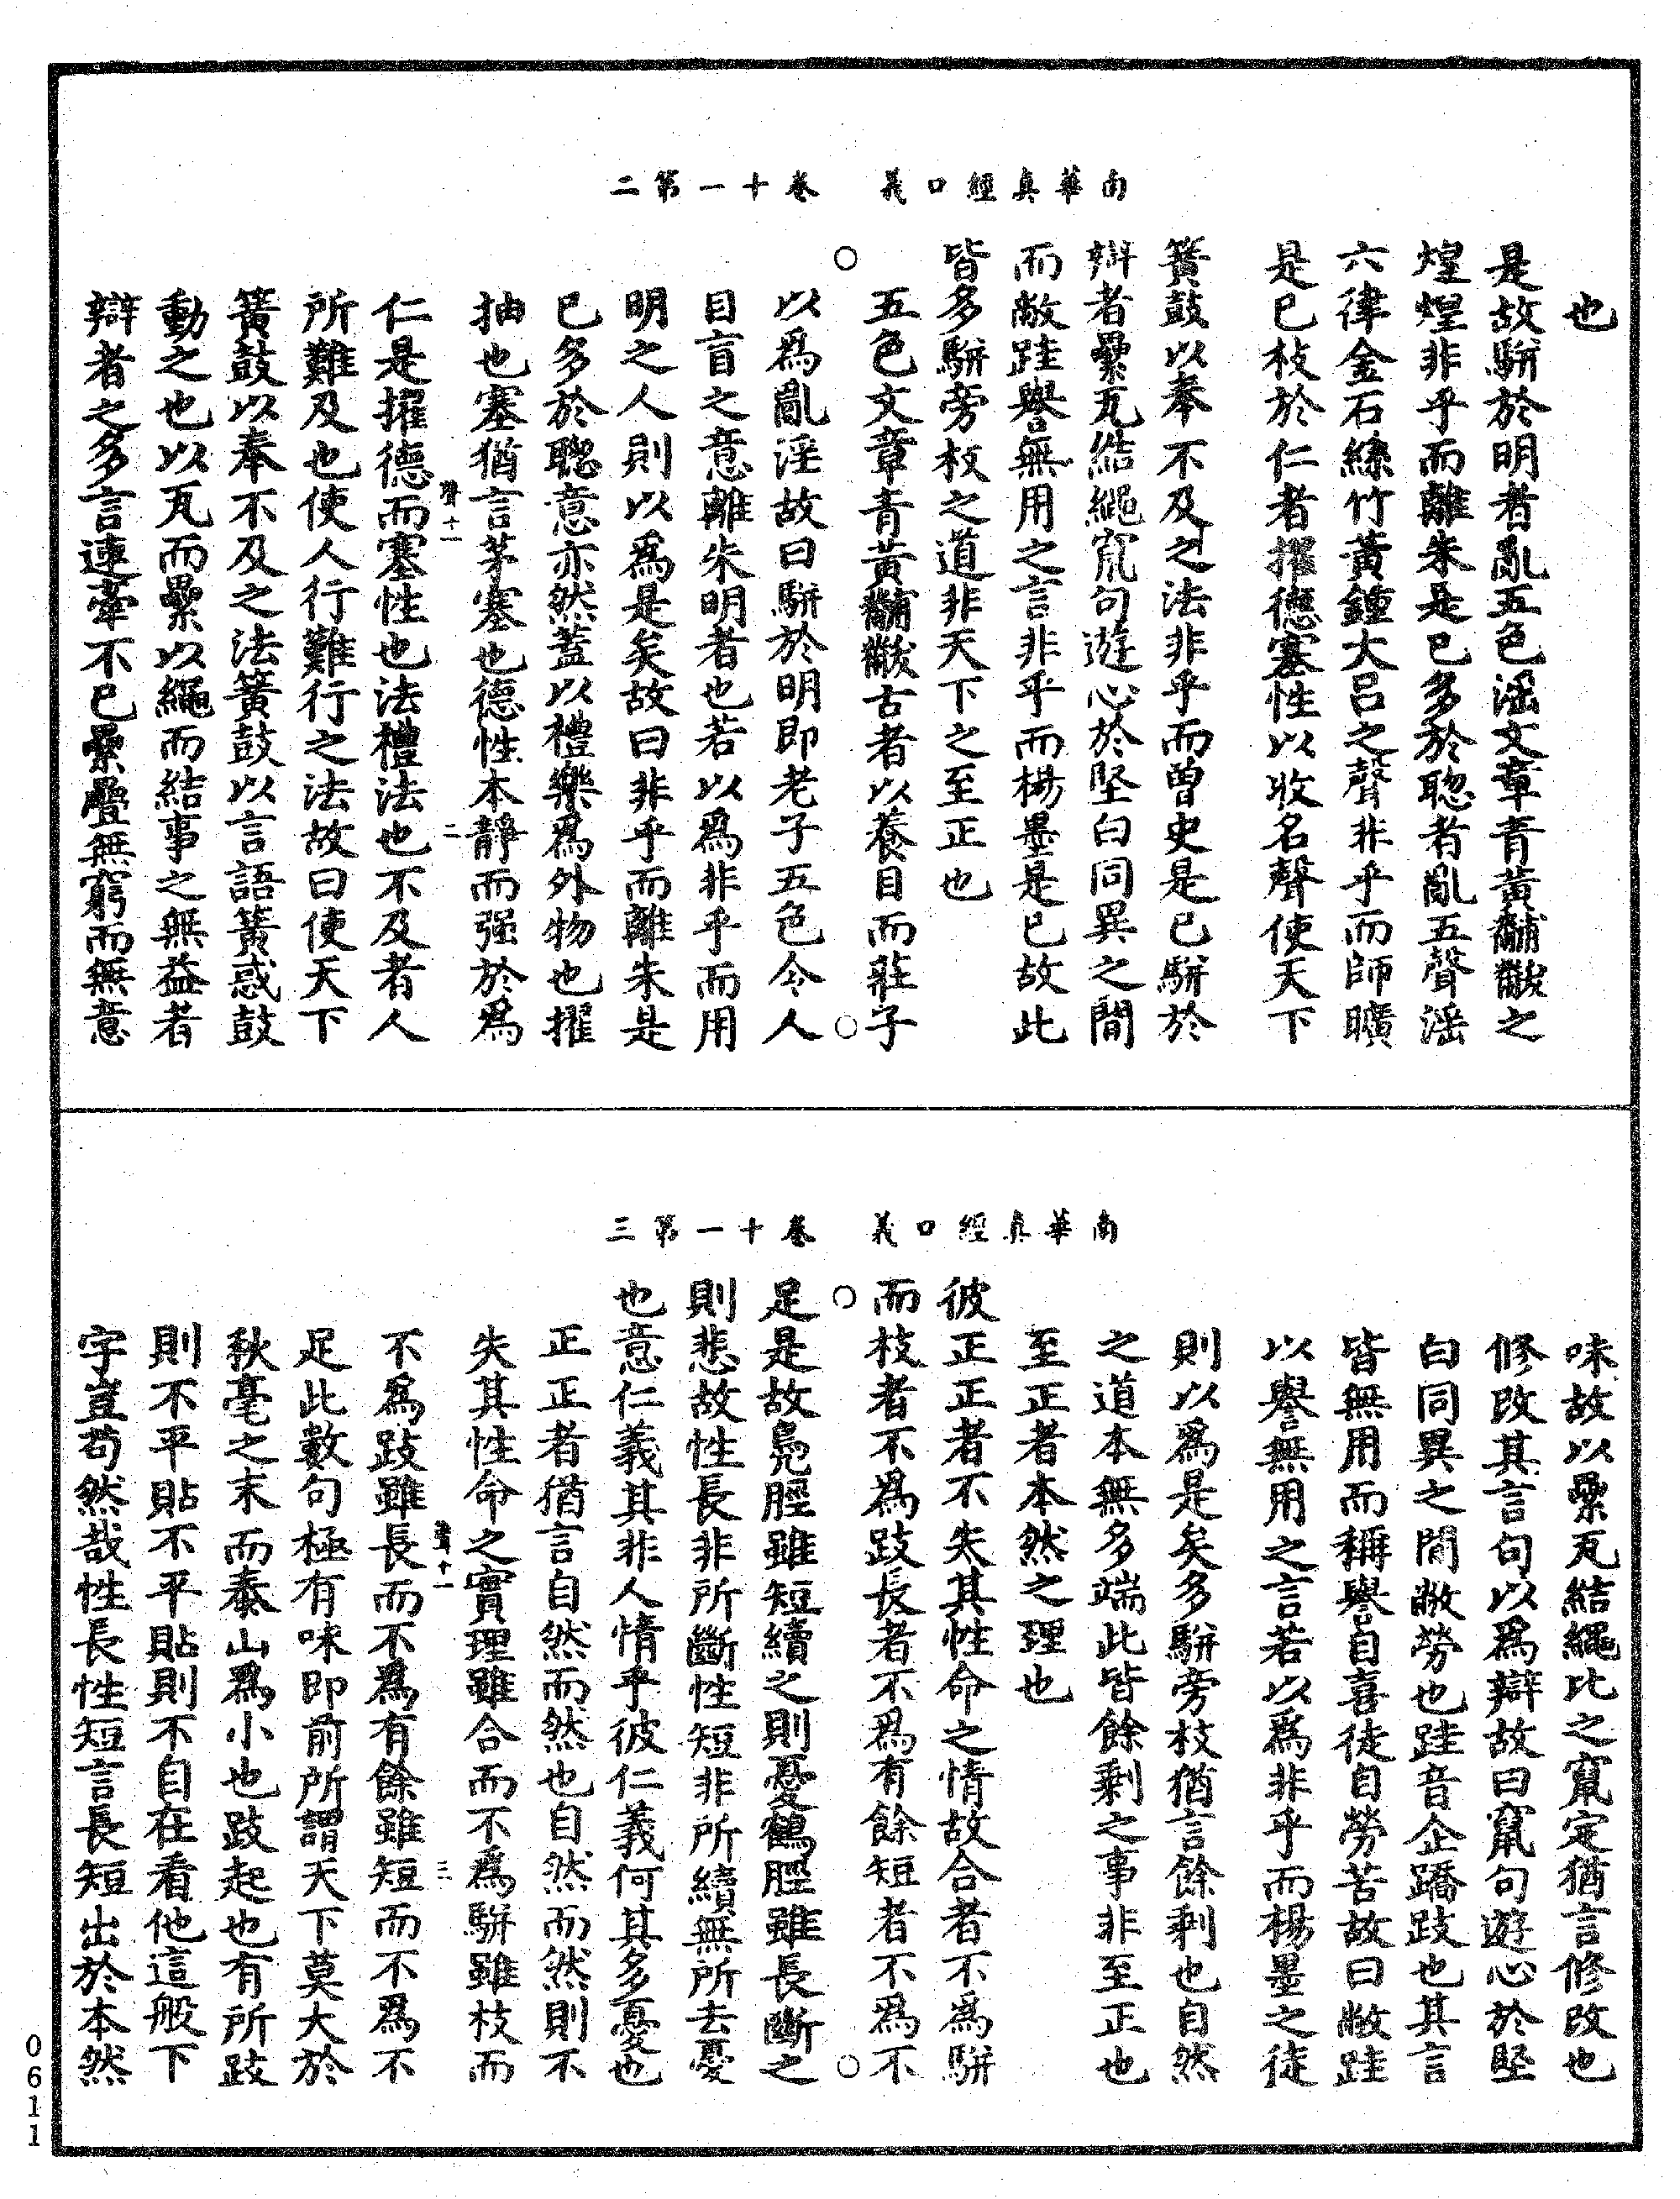 南華真經口義　卷十一第二
也
是故駢於明者亂五色淫文章青黃黼黻之
煌煌非乎而離朱是已多於聰者亂五聲淫
六律金石絲竹黃鐘大呂之聲非乎而師曠
是已枝於仁者擢德塞性以收名聲使天下
簧鼓以奉不及之法非乎而曾史是已駢於
辯者纍瓦結繩竄句遊心於堅白同異之間
而敝跬譽無用之言非乎而楊墨是已故此
皆多駢旁枝之道非天下之至正也
五色文章青黃黼黻古者以養目而莊子
以為亂淫故曰駢於明即老子五色令人
目盲之意離朱明者也若以為非乎而用
明之人則以為是矣故曰非乎而離朱是
已多於聰意亦然蓋以禮樂為外物也擢
抽也塞猶言茅塞也德性本靜而强於為
仁是擢德而塞性也法禮法也不及者人
聲十一
二
所難及也使人行難行之法故曰使天下
簧鼓以奉不及之法簧鼓以言語簧惑鼓
動之也以瓦而纍以繩而結事之無益者
辯者之多言連牽不已纍疊無窮而無意
南華真經口義　卷十一第三
味故以纍瓦結繩比之竄定猶言修改也
修改其言句以為辯故曰竄句遊心於堅
白同異之間敝勞也跬音企蹻跂也其言
皆無用而稱譽自喜徒自勞苦故曰敝跬
以譽無用之言若以為非乎而楊墨之徒
則以為是矣多駢旁枝猶言餘剩也自然
之道本無多端此皆餘剩之事非至正也
至正者本然之理也
彼正正者不失其性命之情故合者不為駢
而枝者不為跂長者不為有餘短者不為不
足是故鳧脛雖短續之則憂鶴脛雖長斷之
則悲故性長非所斷性短非所續無所去憂
也意仁義其非人情乎彼仁義何其多憂也
正正者猶言自然而然也自然而然則不
失其性命之實理雖合而不為駢雖枝而
不為跂雖長而不為有餘雖短而不為不
聲十一
三
足此數句極有味即前所謂天下莫大於
秋毫之末而泰山為小也跂起也有所跂
則不平貼不平貼則不自在看他這般下
字豈苟然哉性長性短言長短出於本然
0611